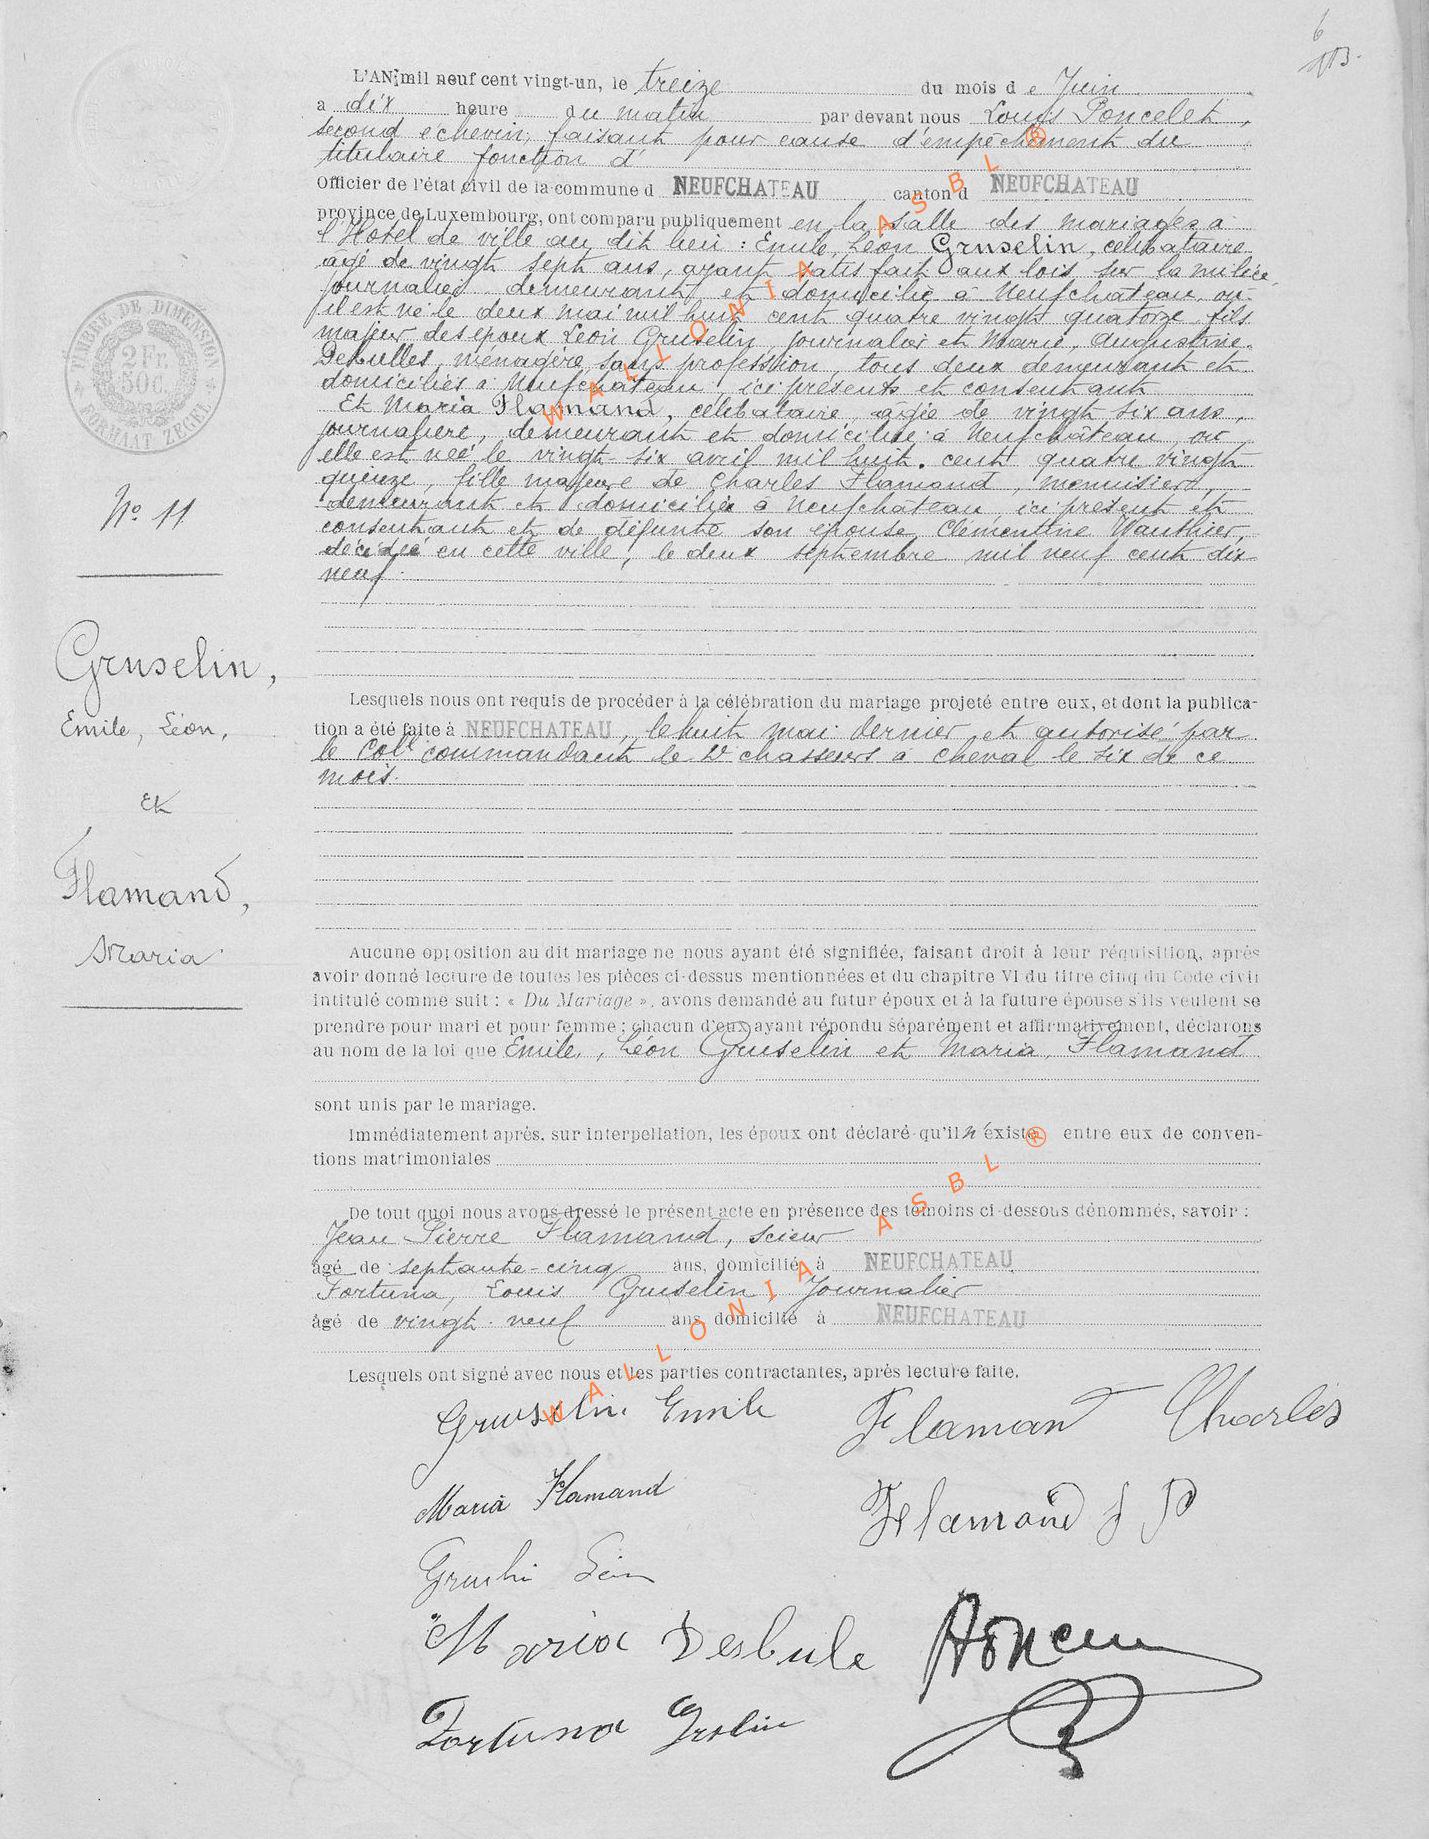 6
113.
L'AN mil neuf cent vingt-un, le treize du mois d e Juin
a dix heure du matin par devant nous Louis Poncelet,
second echevin, faisant pour cause d'empêchement du
titulaire fonction d'
Officier de l'état civil de la commune d NEUFCHATEAU canton d NEUFCHATEAU
province de Luxembourg, ont comparu publiquement en la salle des mariages a
l'Hôtel de ville au dit lieu : Emile, Léon Gruselin, célibataire
agé de vingt sept ans, ayant satisfait aux lois sur la milice,
journalier demeurant et domicilié à Neufchâteau, où
il est né le deux mai mil huit cent quatre vingt quatorze fils
majeur des epoux Léon Gruselin, journalier et Marie, Augustine.
Desbulles, menagère, sans profession, tous deux demeurant et
domiciliés à Neufchâteau, ici présents et consentants
Et Maria Flamand, célibataire, âgée de vingt six ans,
journalière, demeurant et domiciliée à Neufchâteau, où
elle est née le vingt-six avril mil huit. cent quatre vingt
quinze, fille majeure de Charles Flamand, menuisier,
demeurant et domicilié à Neufchâteau, ici présent et
consentant et de défunte son épouse Clémentine Wauthier,
décédée en cette ville, le deux septembre mil neuf cent dix
neuf.
N° 11
Gruselin,
Emile, Léon,
Et
Flamand,
Maria
TIMBRE DE DIMENSION
2 Fr. 50 C.
FORMAAT ZEGEL
Lesquels nous ont requis de procéder à la célébration du mariage projeté entre eux, et dont la publica-
tion a été faite à NEUFCHATEAU, le huit mai dernier et autorisé par
le Coll commandant le 2e chasseurs à cheval le six de ce
mois.
Aucune opposition au dit mariage ne nous ayant été signifiée, faisant droit à leur réquisition, après
avoir donné lecture de toutes les pièces ci-dessus mentionnées et du chapitre VI du titre cinq du Code civil
intitulé comme suit : « Du Mariage », avons demandé au futur époux et à la future épouse s'ils veulent se
prendre pour mari et pour femme ; chacun d'eux ayant répondu séparément et affirmativement, déclarons
au nom de la loi que Emile, Léon Gruselin et Maria, Flamand
sont unis par le mariage.
Immédiatement après, sur interpellation, les époux ont déclaré qu'il n'existe entre eux de conven-
tions matrimoniales
De tout quoi nous avons dressé le présent acte en présence des témoins ci-dessous dénommés, savoir :
Jean Pierre Flamand, scieur
âgé de septante-cinq ans, domicilié à NEUFCHATEAU
Fortuna, Louis Gruselin Journalier
âgé de vingt-neuf ans domicilié à NEUFCHATEAU
Lesquels ont signé avec nous et les parties contractantes, après lecture faite.
Gruselin Emile Flamand Charles
Maria Flamand Flamand J P
Léon
Maria Desbule
Fortuna
WALLONIA ASBL ®
WALLONIA ASBL ®